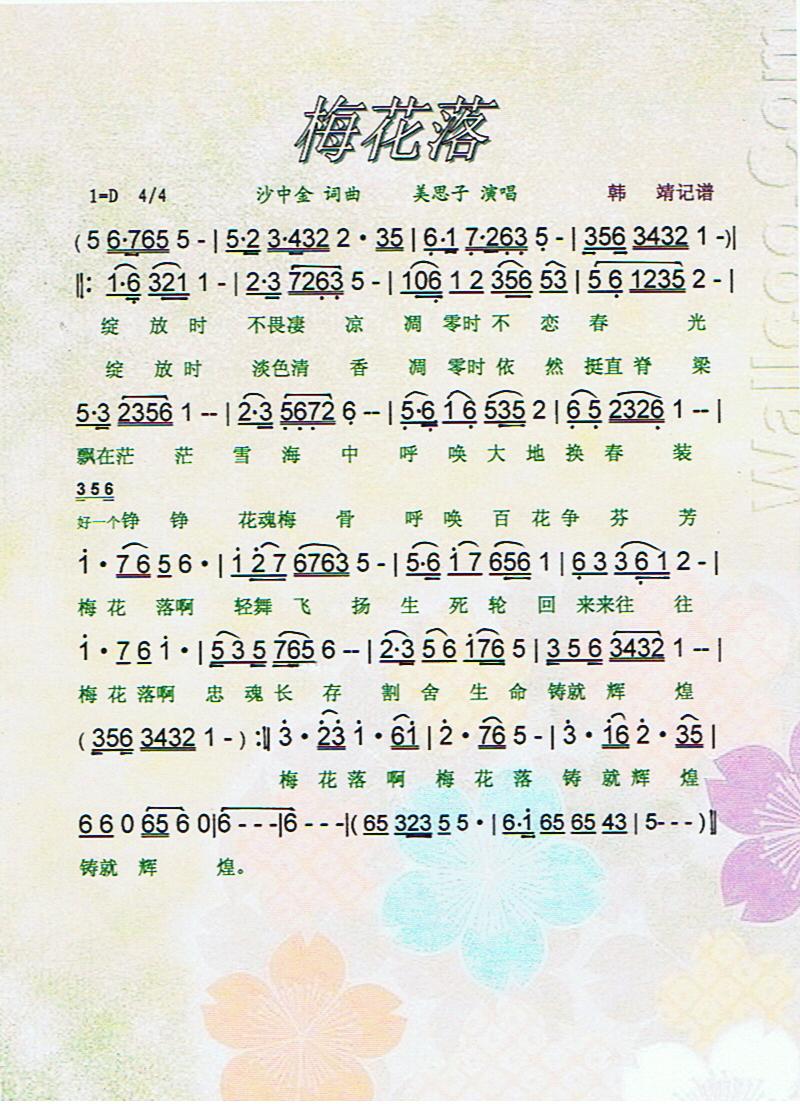 梅花落
1=D 4/4 沙中金 词曲 美思子 演唱 韩 靖记谱
( 5 6·765 5 - | 5·2 3·432 2 · 35 | 6·1 7·263 5 - | 356 3432 1 -)|
‖: 1·6 321 1 - | 2·3 7263 5 - | 106 1 2 356 53 | 5 6 1235 2 - |
绽 放 时 不畏凄 凉 凋 零时 不 恋 春 光
绽 放 时 淡色清 香 凋 零时 依 然 挺直 脊 梁
5·3 2356 1 -- | 2·3 5672 6 -- | 5·6 1 6 535 2 | 6 5 2326 1 -- |
飘在茫 茫 雪 海 中 呼 唤 大 地 换 春 装
3 5 6
好一个铮 铮 花魂梅 骨 呼 唤 百 花 争 芬 芳
i · 7 6 5 6 · | i 2̇ 7 6763 5 - | 5·6 i 7 656 1 | 6 3 3 6 1 2 - |
梅 花 落啊 轻舞 飞 扬 生 死 轮 回 来来往 往
i · 7 6 i · | 5 3 5 765 6 -- | 2·3 5 6 i76 5 | 3 5 6 3432 1 -- |
梅 花 落啊 忠 魂 长 存 割 舍 生 命 铸就 辉 煌
( 356 3432 1 - ) :‖ 3̇ · 2̇3̇ i · 6i | 2̇ · 76 5 - | 3̇ · i6 2̇ · 3̇5 |
梅 花 落 啊 梅 花 落 铸 就 辉 煌
6 6 0 65 6 0|6 - - -|6 - - -|( 65 323 5 5 · | 6·i 65 65 43 | 5- - - )‖
铸就 辉 煌。
Walleoo.com